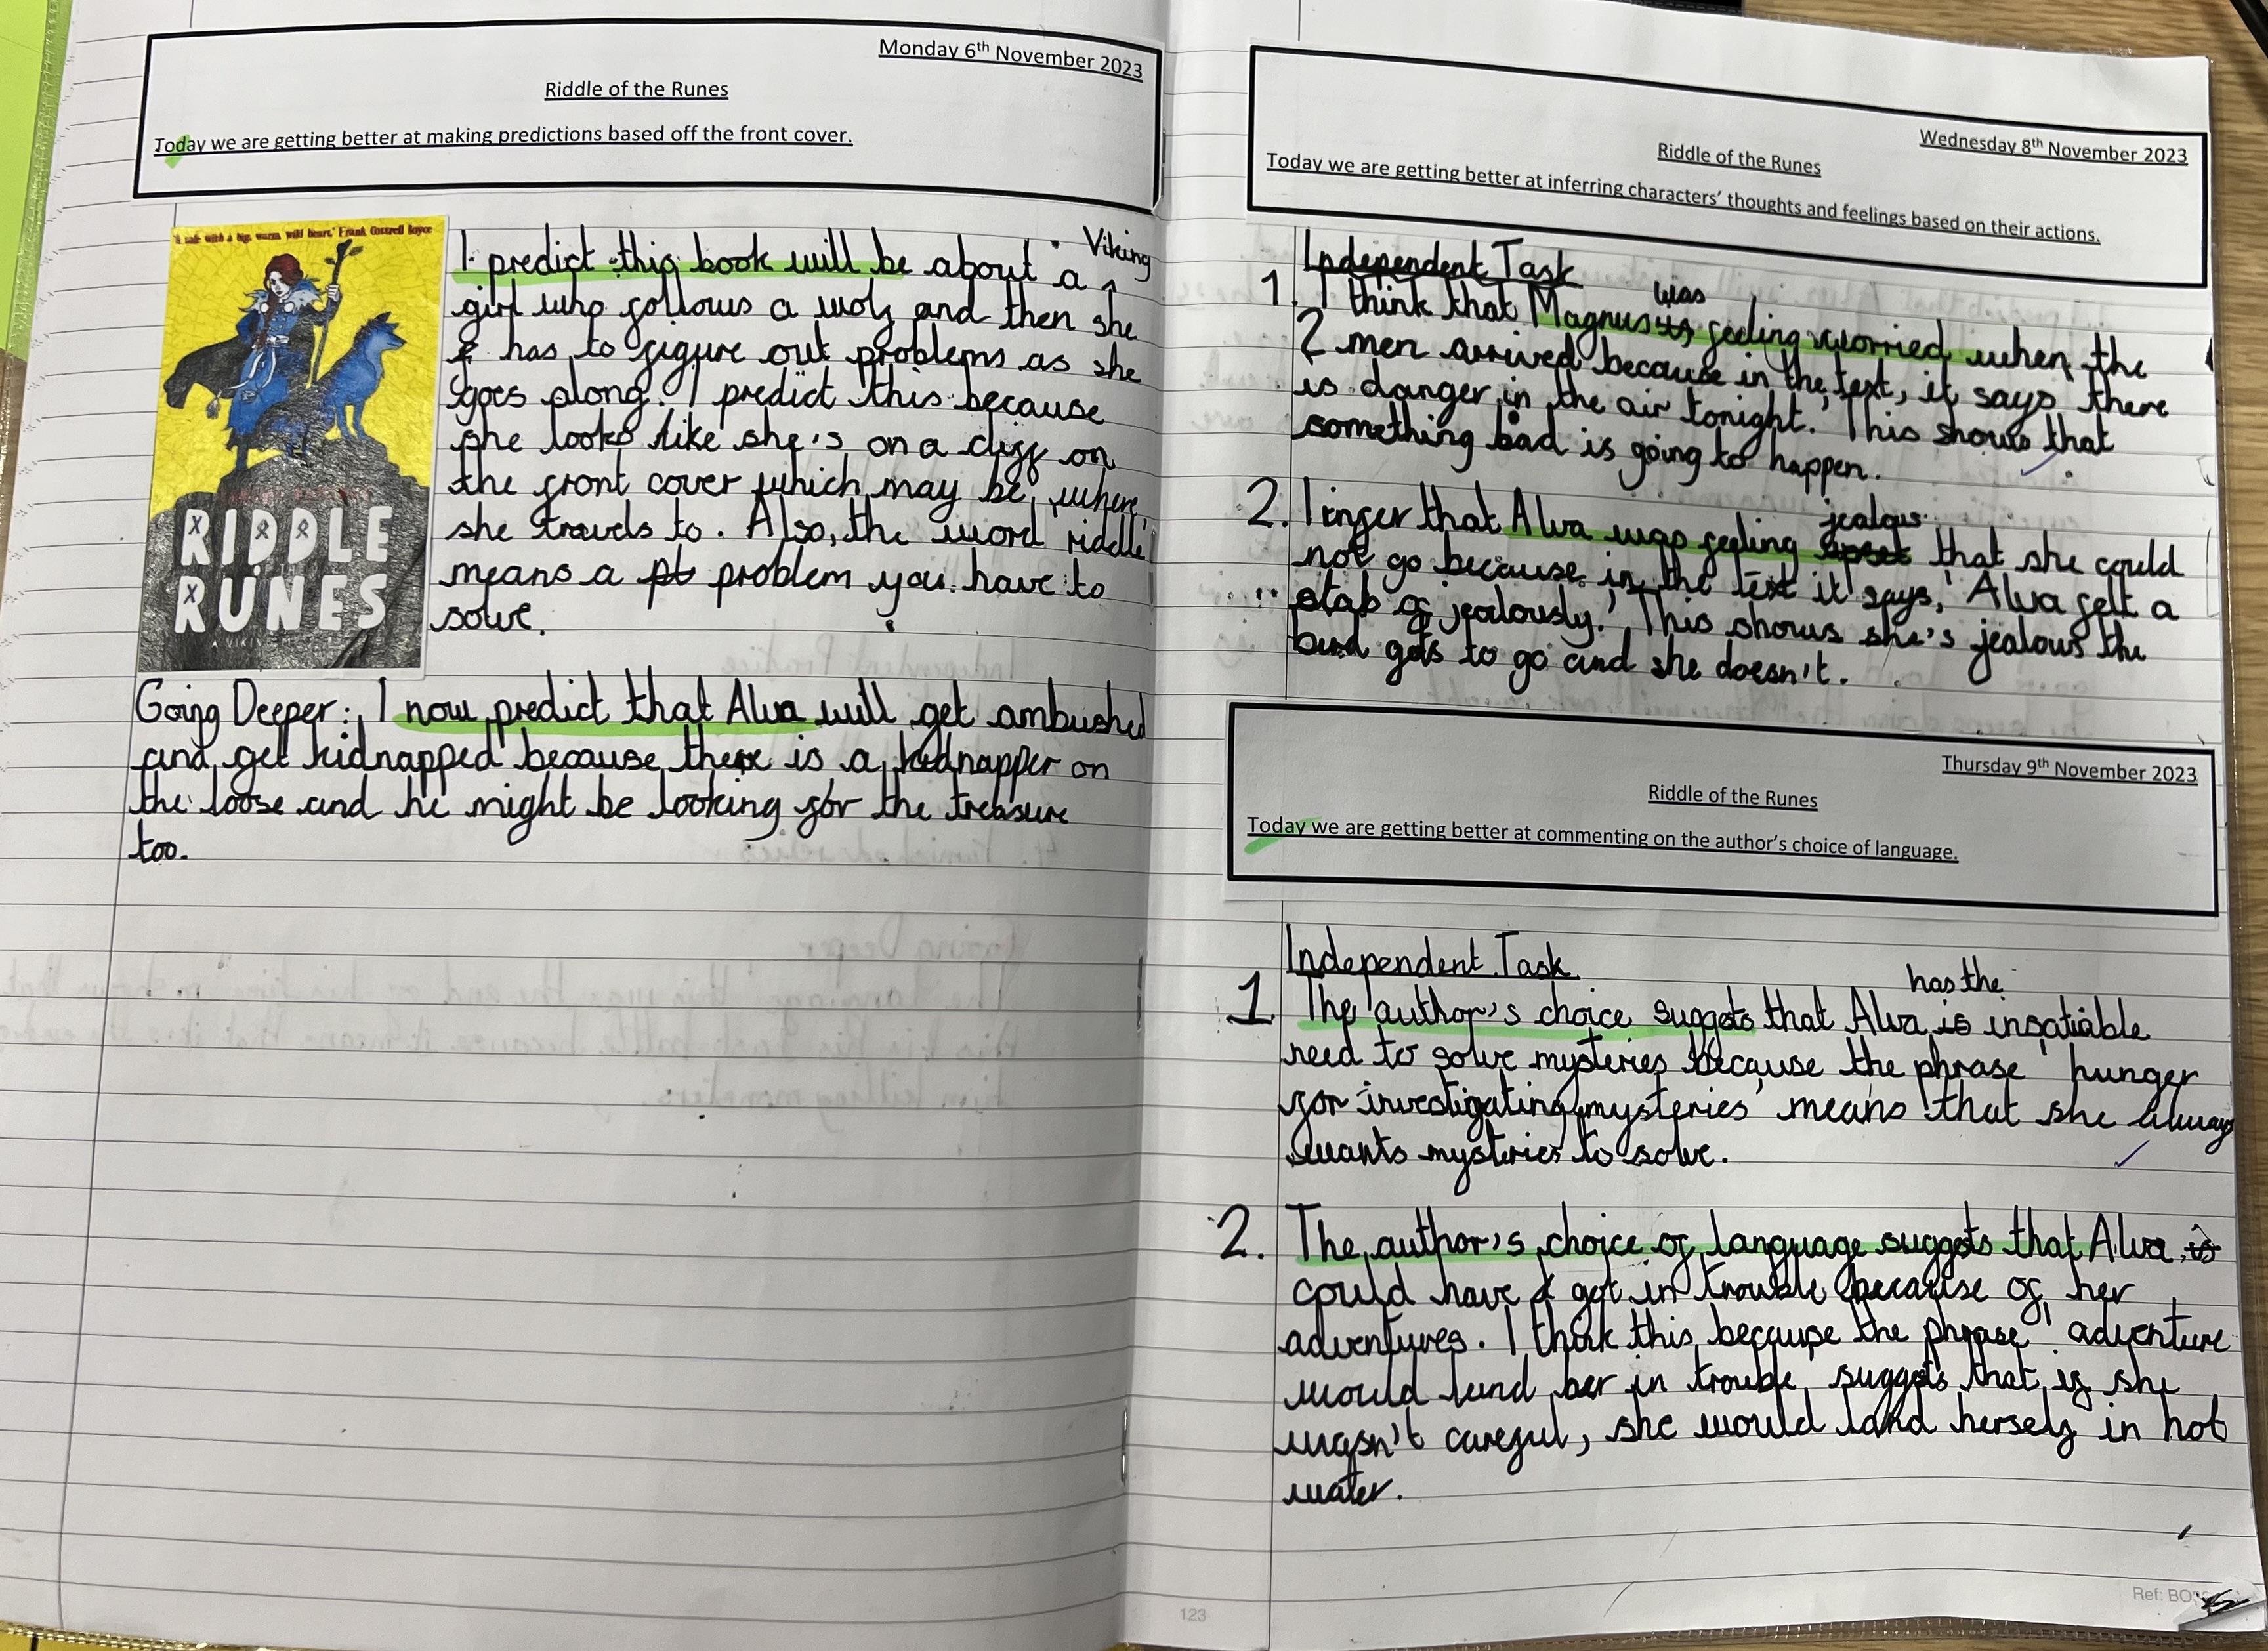 Monday 6th November 2023
Riddle of the Runes
Today we are getting better at making predictions based off the front cover.
'A tale with a big, warm, wild heart.' Frank Cottrell Boyce
RIDDLE
RUNES
A VIKI
I predict this book will be about a Viking
girl who follows a wolf and then she
has to figure out problems as she
goes along. I predict this because
she looks like she's on a cliff on
the front cover which may be where
she travels to. Also, the word 'riddle'
means a pt problem you have to
solve.
Going Deeper: I now predict that Alva will get ambushed
and get kidnapped because there is a kidnapper on
the loose and he might be looking for the treasure
too.
123
Wednesday 8th November 2023
Riddle of the Runes
Today we are getting better at inferring characters' thoughts and feelings based on their actions.
Independent Task
1. I think that Magnus was feeling worried when the
2 men arrived because in the text, it says there
is danger in the air tonight.' This shows that
something bad is going to happen.
2. I infer that Alva was feeling upset jealous that she could
not go because in the text it says, 'Alva felt a
stab of jealously.' This shows she's jealous the
bird gets to go and she doesn't.
Thursday 9th November 2023
Riddle of the Runes
Today we are getting better at commenting on the author's choice of language.
Independent Task
1 The author's choice suggets that Alva is has the insatiable
need to solve mysteries because the phrase 'hunger
for investigating mysteries' means that she always
wants mysteries to solve.
2. The author's choice of language suggets that Alva is
could have got in trouble because of her
adventures. I think this because the phrase 'adventure
would land her in trouble' suggets that if she
wasn't careful, she would land herself in hot
water.
Ref: BO